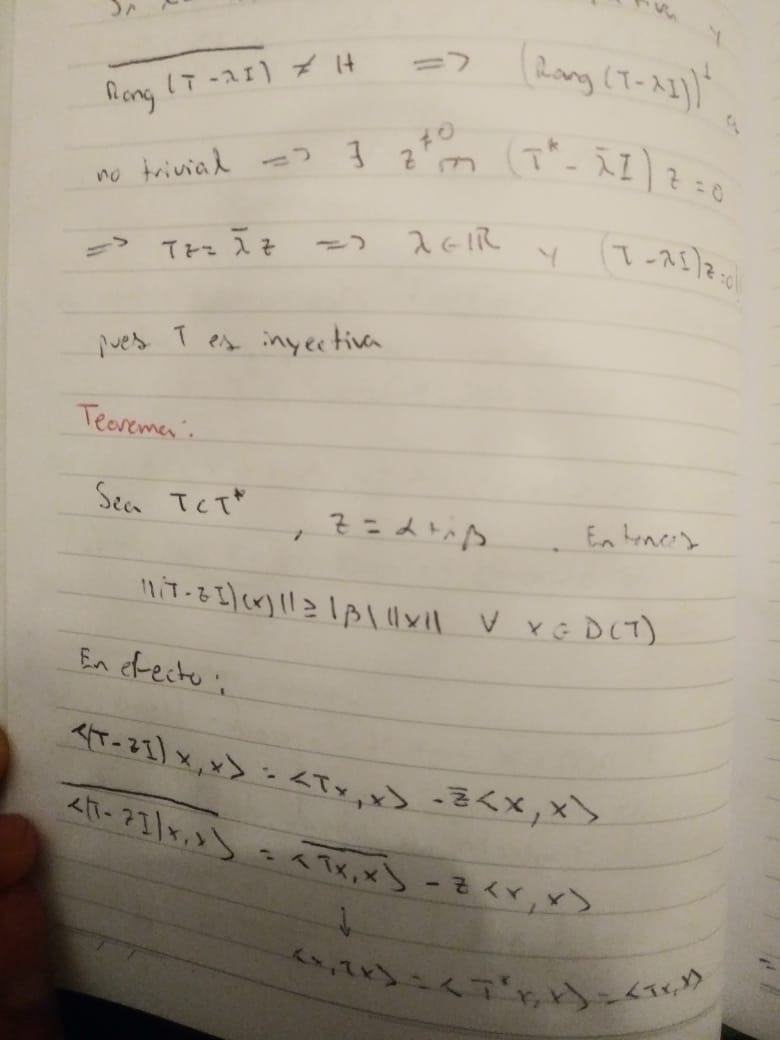 y
\overline{Rang (T - λI)} ≠ H ⟹ (Rang (T-λI))^⊥
no trivial ⟹ ∃ z^{≠0} (T* - λ̄I) z = 0
⟹ Tz = λ̄ z ⟹ λ ∈ ℝ y (T - λI)z = 0
pues T es inyectiva
Teorema:
Sea T ⊂ T* , z = α + iβ . Entonces
||(T-zI)(x)|| ≥ |β| ||x|| ∀ x ∈ D(T)
En efecto:
<(T-zI)x, x> = <Tx, x> - z̄<x, x>
\overline{<(T-zI)x, x>} = \overline{<Tx, x>} - z<x, x>
↓
<x, Tx> = <T*x, x> = <Tx, x>
=